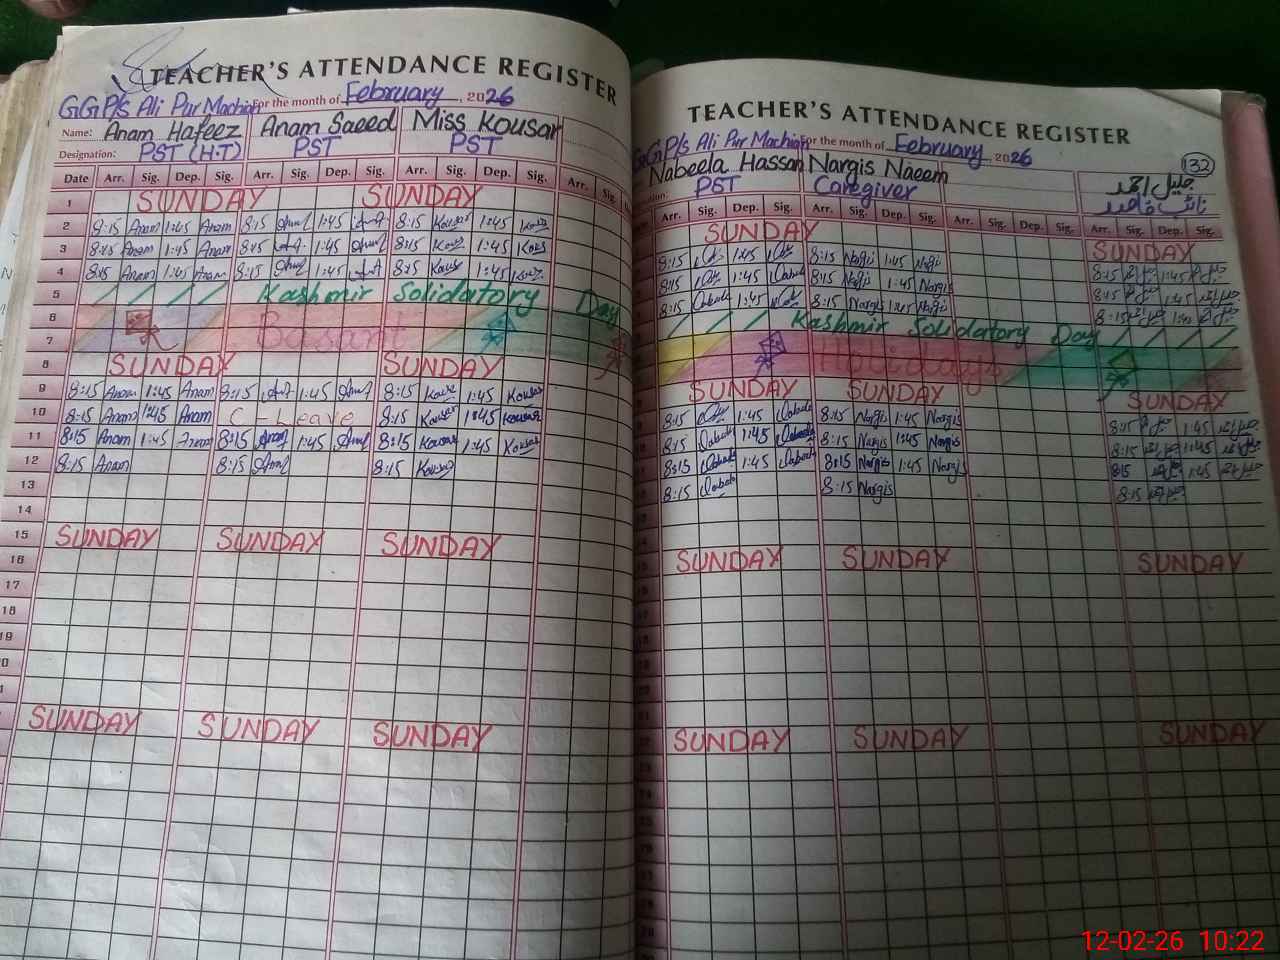 TEACHER'S ATTENDANCE REGISTER
GGP/s Ali Pur Machian For the month of February, 2026
Name: Anam Hafeez Anam Saeed Miss Kousar
Designation: PST (H.T) PST PST
Date Arr. Sig. Dep. Sig. Arr. Sig. Dep. Sig. Arr. Sig. Dep. Sig. Arr. Sig.
1 SUNDAY SUNDAY
2 8:15 Anam 1:45 Anam 8:15 1:45 8:15 Kous 1:45 Kous
3 8:15 Anam 1:45 Anam 8:15 1:45 8:15 Kous 1:45 Kous
4 8:15 Anam 1:45 Anam 8:15 1:45 8:15 Kous 1:45
5 Kashmir Solidatory Day
6 Basant
7
8 SUNDAY SUNDAY
9 8:15 Anam 1:45 Anam 8:15 1:45 8:15 Kous 1:45 Kousar
10 8:15 Anam 1:45 Anam C-Leave 8:15 Kousar 1:45 Kousar
11 8:15 Anam 1:45 Anam 8:15 1:45 8:15 Kousar 1:45 Kousar
12 8:15 Anam 8:15 8:15 Kousar
13
14
15 SUNDAY SUNDAY SUNDAY
16
17
18
19
SUNDAY SUNDAY SUNDAY
TEACHER'S ATTENDANCE REGISTER
GGP/s Ali Pur Machian For the month of February 2026
132
Nabeela Hassan Nargis Naeem جلیل احمد
PST Caregiver نائب قاصد
Arr. Sig. Dep. Sig. Arr. Sig. Dep. Sig. Arr. Sig. Dep. Sig. Arr. Sig. Dep. Sig.
SUNDAY SUNDAY
8:15 1:45 8:15 Nargis 1:45 Nargis 8:15 1:45
8:15 1:45 8:15 Nargis 1:45 Nargis 8:15 1:45
8:15 1:45 8:15 Nargis 1:45 Nargis 8:15 1:45
Kashmir Solidatory Day
Holidays
SUNDAY SUNDAY SUNDAY
8:15 1:45 8:15 Nargis 1:45 Nargis 8:15 1:45
8:15 1:45 8:15 Nargis 1:45 Nargis 8:15 1:45
8:15 1:45 8:15 Nargis 1:45 Nargis 8:15 1:45
8:15 8:15 Nargis 8:15
SUNDAY SUNDAY SUNDAY
SUNDAY SUNDAY SUNDAY
12-02-26 10:22